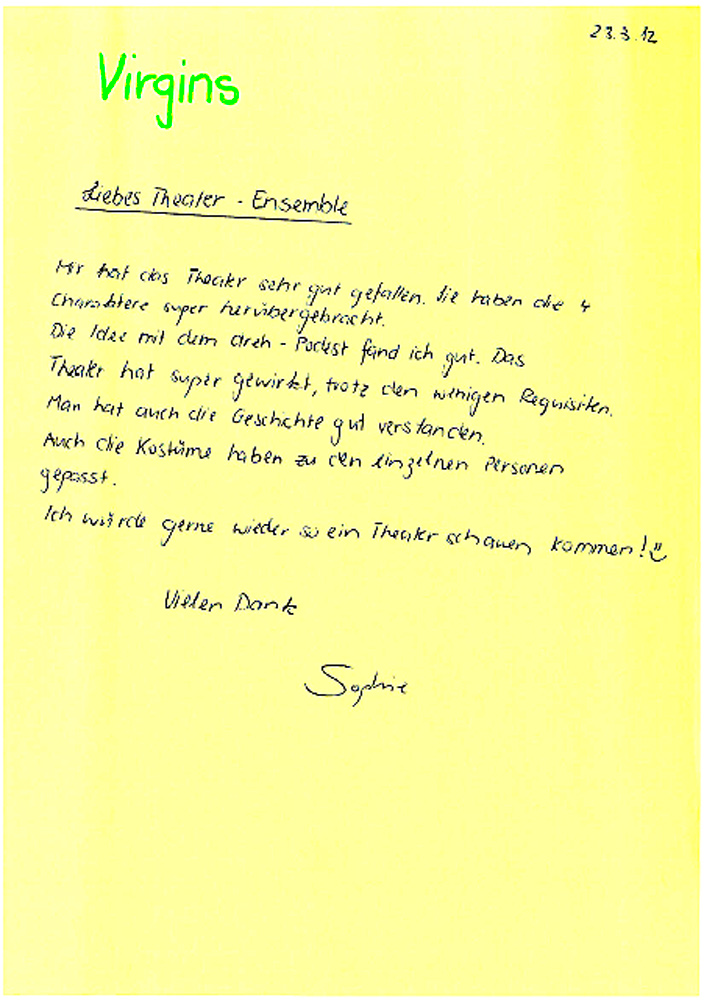 23.3.12
Virgins
Liebes Theater - Ensemble
Mir hat das Theater sehr gut gefallen. Sie haben die 4
Charaktere super herübergebracht.
Die Idee mit dem dreh - Podest fand ich gut. Das
Theater hat super gewirkt, trotz den wenigen Requisiten.
Man hat auch die Geschichte gut verstanden.
Auch die Kostüme haben zu den einzelnen Personen
gepasst.
Ich würde gerne wieder so ein Theater schauen kommen!
Vielen Dank
Sophie